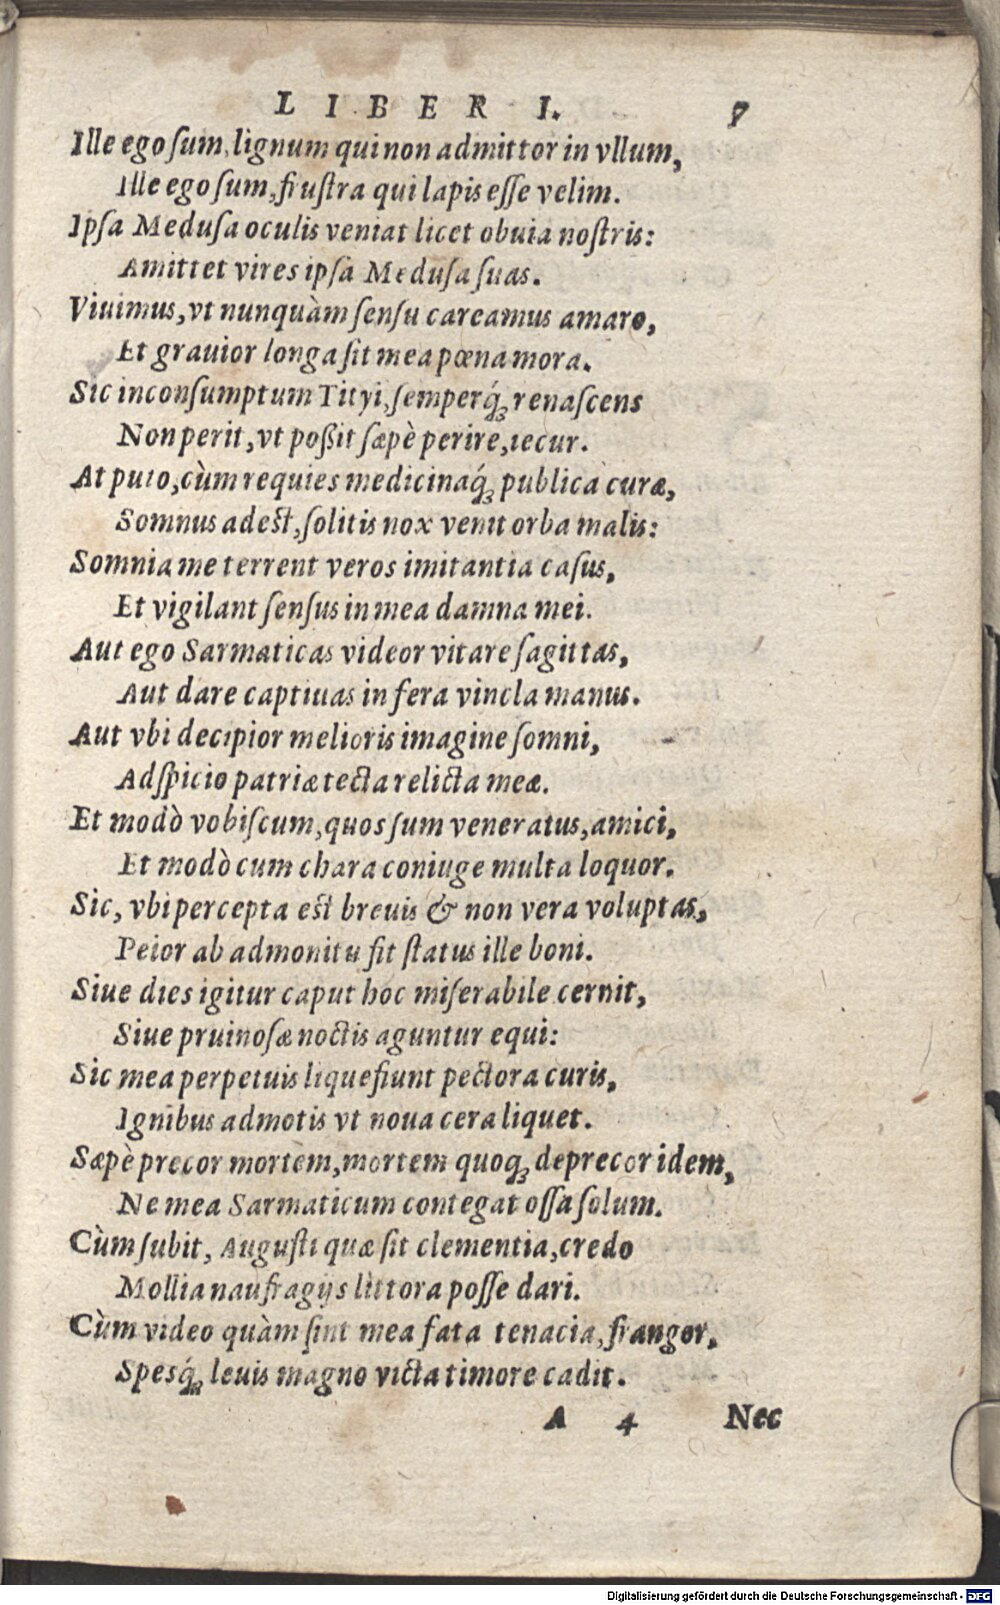 LIBER I. 7
Ille ego sum, lignum qui non admittor in vllum,
Ille ego sum, frustra qui lapis esse velim.
Ipsa Medusa oculis veniat licet obuia nostris:
Amittet vires ipsa Medusa suas.
Viuimus, vt nunquàm sensu careamus amaro,
Et grauior longa fit mea pœna mora.
Sic inconsumptum Tityi, semperq́; renascens
Non perit, vt poßit sæpè perire, iecur.
At puto, cùm requies medicinaq́; publica curæ,
Somnus adest, solitis nox venit orba malis:
Somnia me terrent veros imitantia casus,
Et vigilant sensus in mea damna mei.
Aut ego Sarmaticas videor vitare sagittas,
Aut dare captiuas in fera vincla manus.
Aut vbi decipior melioris imagine somni,
Adspicio patriæ tecta relicta meæ.
Et modò vobiscum, quos sum veneratus, amici,
Et modò cum chara coniuge multa loquor.
Sic, vbi percepta est breuis & non vera voluptas,
Peior ab admonitu fit status ille boni.
Siue dies igitur caput hoc miserabile cernit,
Siue pruinosæ noctis aguntur equi:
Sic mea perpetuis liquefiunt pectora curis,
Ignibus admotis vt noua cera liquet.
Sæpè precor mortem, mortem quoq; deprecor idem,
Ne mea Sarmaticum contegat ossa solum.
Cùm subit, Augusti quæ sit clementia, credo
Mollia naufragijs littora posse dari.
Cùm video quàm sint mea fata tenacia, frangor,
Spesq́; leuis magno victa timore cadit.
A 4 Nec
Digitalisierung gefördert durch die Deutsche Forschungsgemeinschaft - DFG